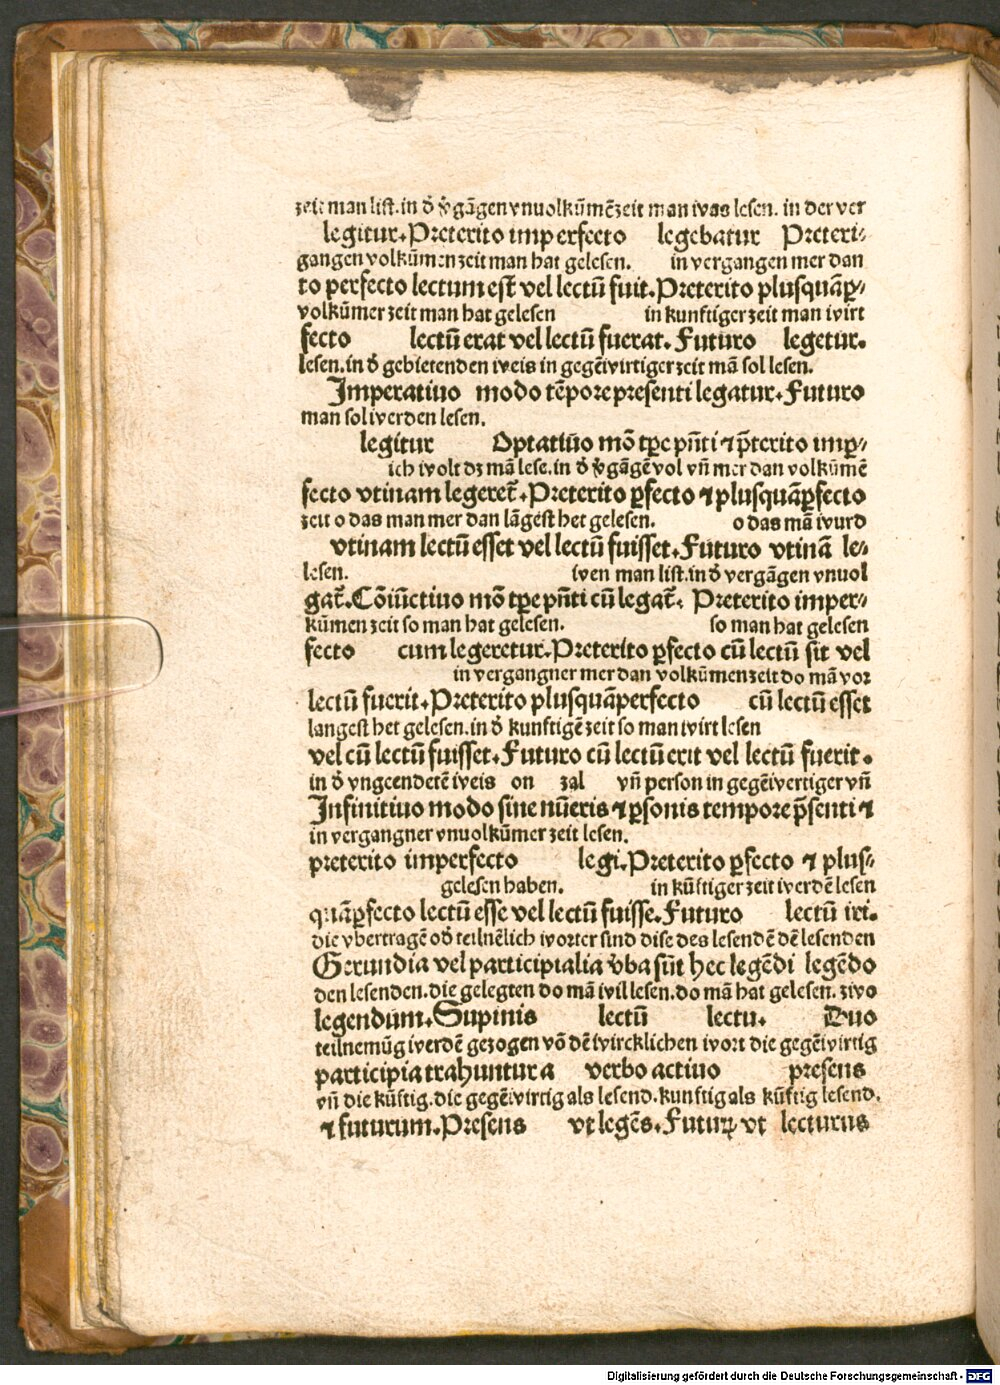 zeit man list. in d̕ v̕gāgen vnuolkūmēzeit man was lesen. in der ver
legitur. Preterito imperfecto legebatur Preteri⸗
gangen volkūmenzeit man hat gelesen. in vergangen mer dan
to perfecto lectum est̄ vel lectū fuit. Preterito plusquāꝑ⸗
volkūmer zeit man hat gelesen in kunftiger zeit man wirt
fecto lectū erat vel lectū fuerat. Futuro legetur.
lesen. in d̕ gebietenden weis in gegēwirtiger zeit mā sol lesen.
Imperatiuo modo tēpore presenti legatur. Futuro
man sol werden lesen.
legitur Optatiūo mō tꝑe pn̄ti ⁊ p̄terito imꝑ⸗
ich wolt dz mā lese. in d̕ v̕gāgē vol vn̄ mer dan volkūmē
fecto vtinam legeret̄. Preterito ꝑfecto ⁊ plusquāꝑfecto
zeit o das man mer dan lāgest het gelesen. o das mā wurd
vtinam lectū esset vel lectū fuisset. Futuro vtinā le⸗
lesen. wen man list. in d̕ vergāgen vnuol
gat̄. Cōiūctiuo mō tꝑe pn̄ti cū legat̄. Preterito imper⸗
kūmen zeit so man hat gelesen. so man hat gelesen
fecto cum legeretur. Preterito ꝑfecto cū lectū sit vel
in vergangner mer dan volkūmen zeit do mā vor
lectū fuerit. Preterito plusquāperfecto cū lectū esset
langest het gelesen. in d̕ kunftigē zeit so man wirt lesen
vel cū lectū fuisset. Futuro cū lectū erit vel lectū fuerit.
in d̕ vngeendetē weis on zal vn̄ person in gegēwertiger vn̄
Infinitiuo modo sine nūeris ⁊ ꝑsonis tempore p̄senti ⁊
in vergangner vnuolkūmer zeit lesen.
preterito imperfecto legi. Preterito ꝑfecto ⁊ plus⸗
gelesen haben. in kūftiger zeit werdē lesen
quāꝑfecto lectū esse vel lectū fuisse. Futuro lectū iri.
die vbertragē od̕ teilnēlich worter sind dise des lesendē dē lesenden
Gerundia vel participialia v̕ba sūt hec legēdi legēdo
den lesenden. die gelegten do mā wil lesen. do mā hat gelesen. zwo
legendum. Supinis lectū lectu. Duo
teilnemūg werdē gezogen vō dē wircklichen wort die gegēwirtig
participia trahuntur a verbo actiuo presens
vn̄ die kūftig. die gegēwirtig als lesend. kunftig als kūftig lesend.
⁊ futurum. Presens vt legēs. Futuꝝ vt lecturus
Digitalisierung gefördert durch die Deutsche Forschungsgemeinschaft - DFG